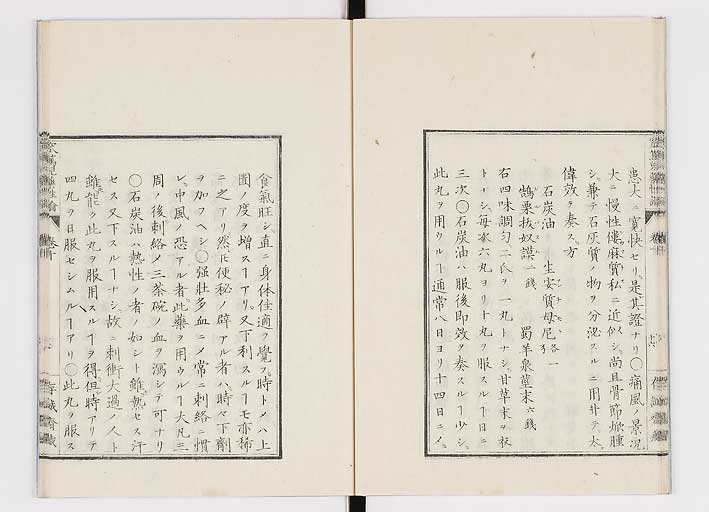 患大ニ寛快セリ、是其證ナリ○痛風ノ景況
大ニ慢性僂麻質私ニ近似シ、尚且骨節焮腫
シ、兼テ石灰質ノ物ヲ分泌スルニ用井テ大
偉效ヲ奏ス、方
石炭油 生安質母尼 各一
鵠栗抜奴謨 二錢 蜀羊泉莖末 六錢
右四味調匀二氏ヲ一丸トナシ、甘草末ヲ衣
トナシ毎次六丸ヨリ十丸ヲ服スルヿ日ニ
三次○石炭油ハ服後即效ヲ奏スルヿ少シ、
此丸ヲ用ウルヿ通常八日ヨリ十四日ニメ、
食氣旺シ、直ニ身体佳適ヲ覺フ、時トメハ上
圊ノ度ヲ増スヿアリ、又下利スルヿモ亦稀
ニ之アリ、然氏便秘ノ癖アル者ハ、時々下劑
ヲ加フヘシ○强壮多血ニメ常ニ刺絡慣
レ、中風ノ恐アル者、此藥ヲ用ウルヿ大凡三
周ノ後刺絡メ三茶碗ノ血ヲ瀉シテ可ナリ
○石炭油ハ熱性ノ者ノ如シト雖熱セス汗
セス又下スルヿナシ、故ニ刺衝大過ノ人ト
雖能ク此丸ヲ服用スルヿヲ得、但時アリテ
四丸ヲ日服セシムルヿアリ○此丸ヲ服ス